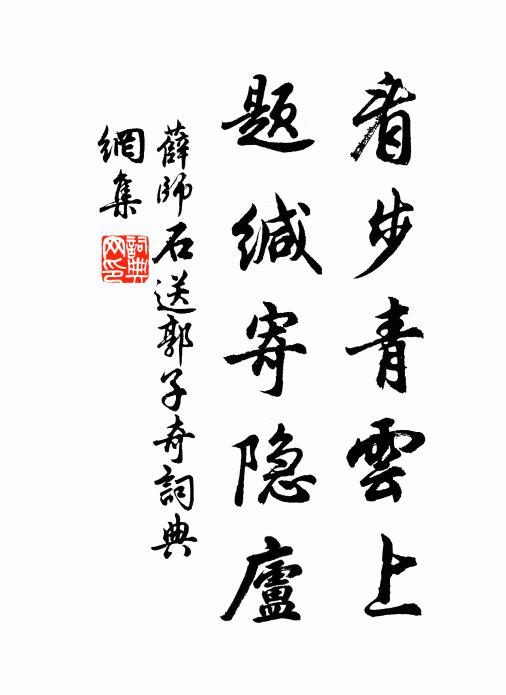 看步青雲上
題緘寄隐廬
薛師石送郭子奇詞典
網集
詞典
网印